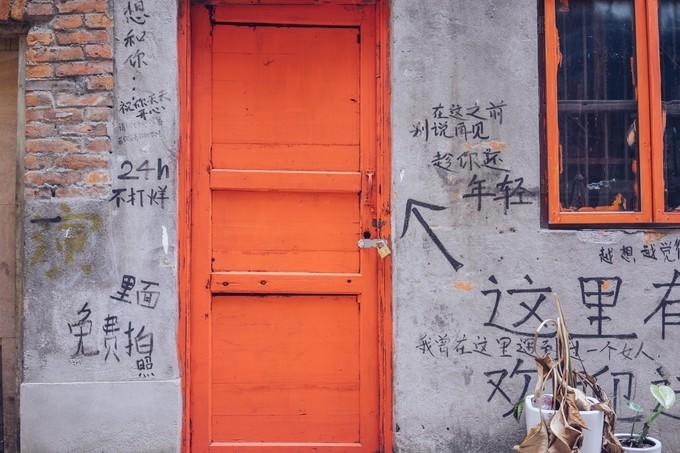 想
和
你
:
祝你天天
开心
24h
不打烊
里面
免费拍
照
在这之前
别说再见
趁你还
年轻
越想越觉
这里有
我曾在这里遇到过一个女人.
欢迎